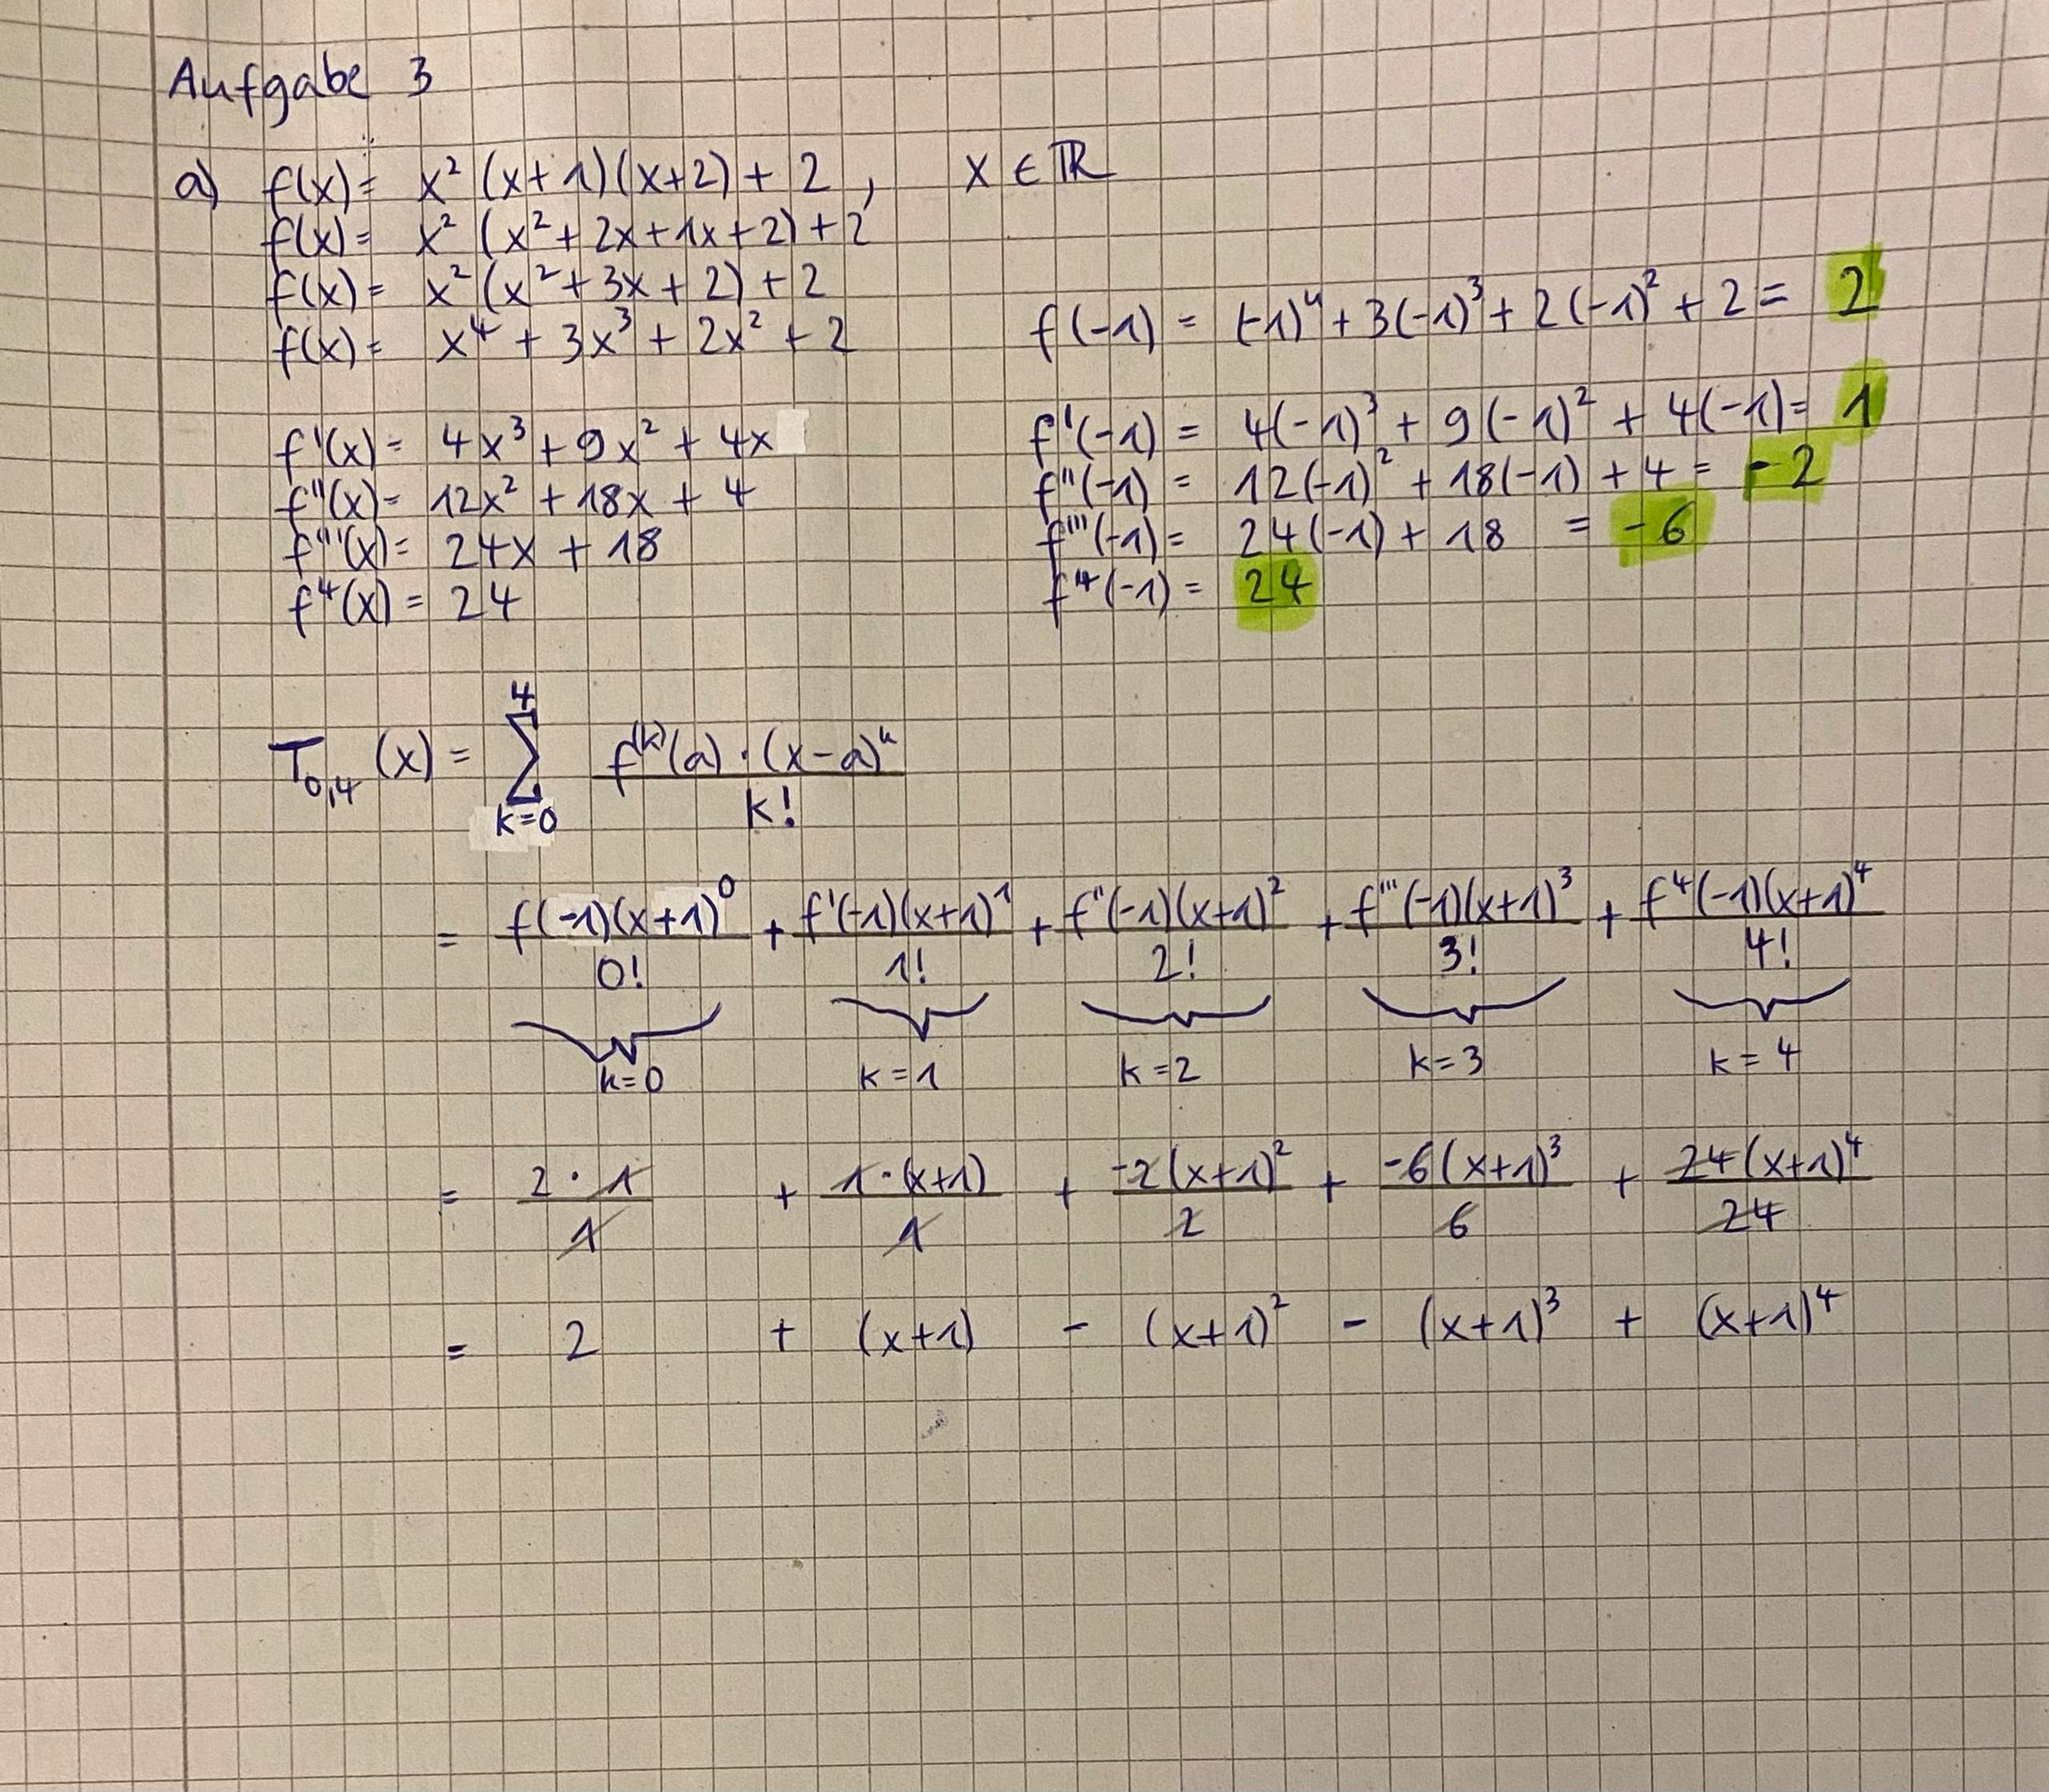 Aufgabe 3
a) f(x) = x² (x+1)(x+2) + 2 , x ∈ ℝ
f(x) = x² (x² + 2x + 1x + 2) + 2
f(x) = x² (x² + 3x + 2) + 2
f(x) = x⁴ + 3x³ + 2x² + 2
f(-1) = (-1)⁴ + 3(-1)³ + 2(-1)² + 2 = 2
f'(x) = 4x³ + 9x² + 4x
f''(x) = 12x² + 18x + 4
f'''(x) = 24x + 18
f⁴(x) = 24
f'(-1) = 4(-1)³ + 9(-1)² + 4(-1) = 1
f''(-1) = 12(-1)² + 18(-1) + 4 = -2
f'''(-1) = 24(-1) + 18 = -6
f⁴(-1) = 24
4
T₀,₄ (x) = Σ f⁽ᵏ⁾(a) · (x-a)ᵏ
k=0 k!
= f(-1)(x+1)⁰ + f'(-1)(x+1)¹ + f''(-1)(x+1)² + f'''(-1)(x+1)³ + f⁴(-1)(x+1)⁴
0! 1! 2! 3! 4!
k=0 k=1 k=2 k=3 k=4
= 2 · 1 + 1 · (x+1) + -2(x+1)² + -6(x+1)³ + 24(x+1)⁴
1 1 2 6 24
= 2 + (x+1) - (x+1)² - (x+1)³ + (x+1)⁴